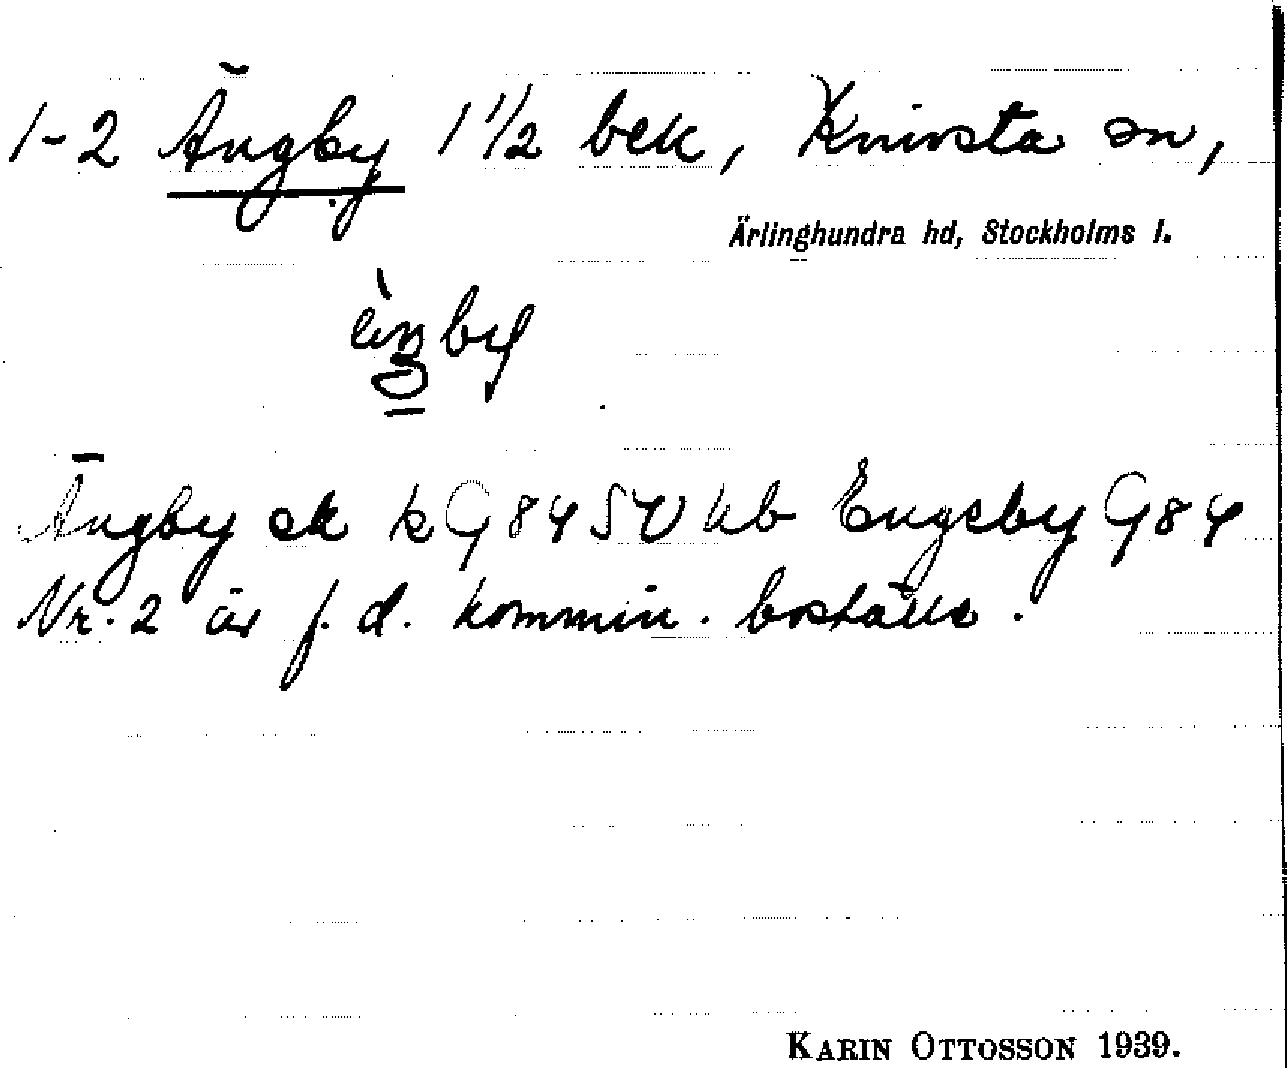 1-2 Ängby 1 1/2 bek, Knivsta sn,
Ärlinghundra hd, Stockholms l.
Ängby ek k G84 SV hb Engeby G84
Nr. 2 är f. d. kommin. boställe.
KARIN OTTOSSON 1939.